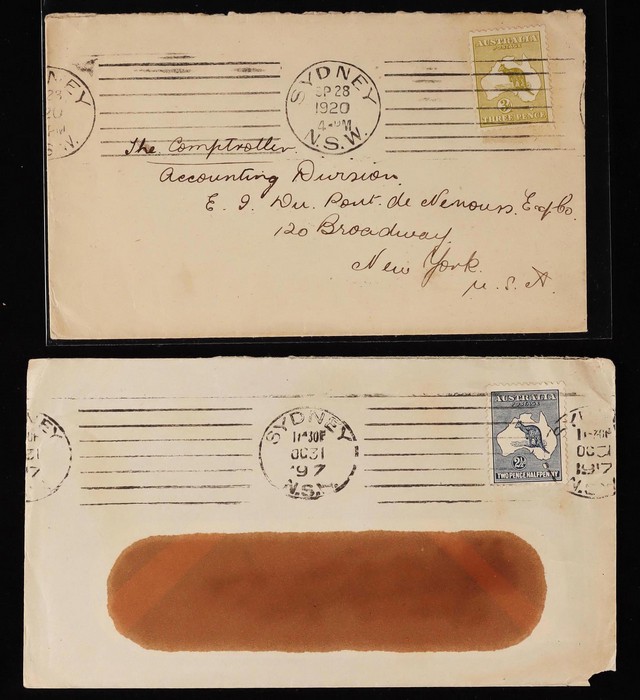 SYDNEY
SP 28
1920
4-PM
N.S.W.
AUSTRALIA
POSTAGE
3D
THREE PENCE
The Comptroller
Accounting Division
E. I. Du. Pont. de Nemours. & Co.
120 Broadway
New York.
U. S. A.
SYDNEY
11-30P
OC31
'97
N.S.W.
AUSTRALIA
POSTAGE
2½
TWO PENCE HALFPENNY
11-30P
OC31
1917
N.S.W.